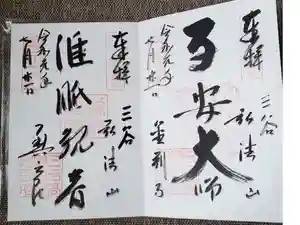 奉拝
三谷
弘法山
子安大師
令和元年
七月廿一日
金剛寺
奉拝
三谷
弘法山
准胝観音
令和元年
七月廿一日